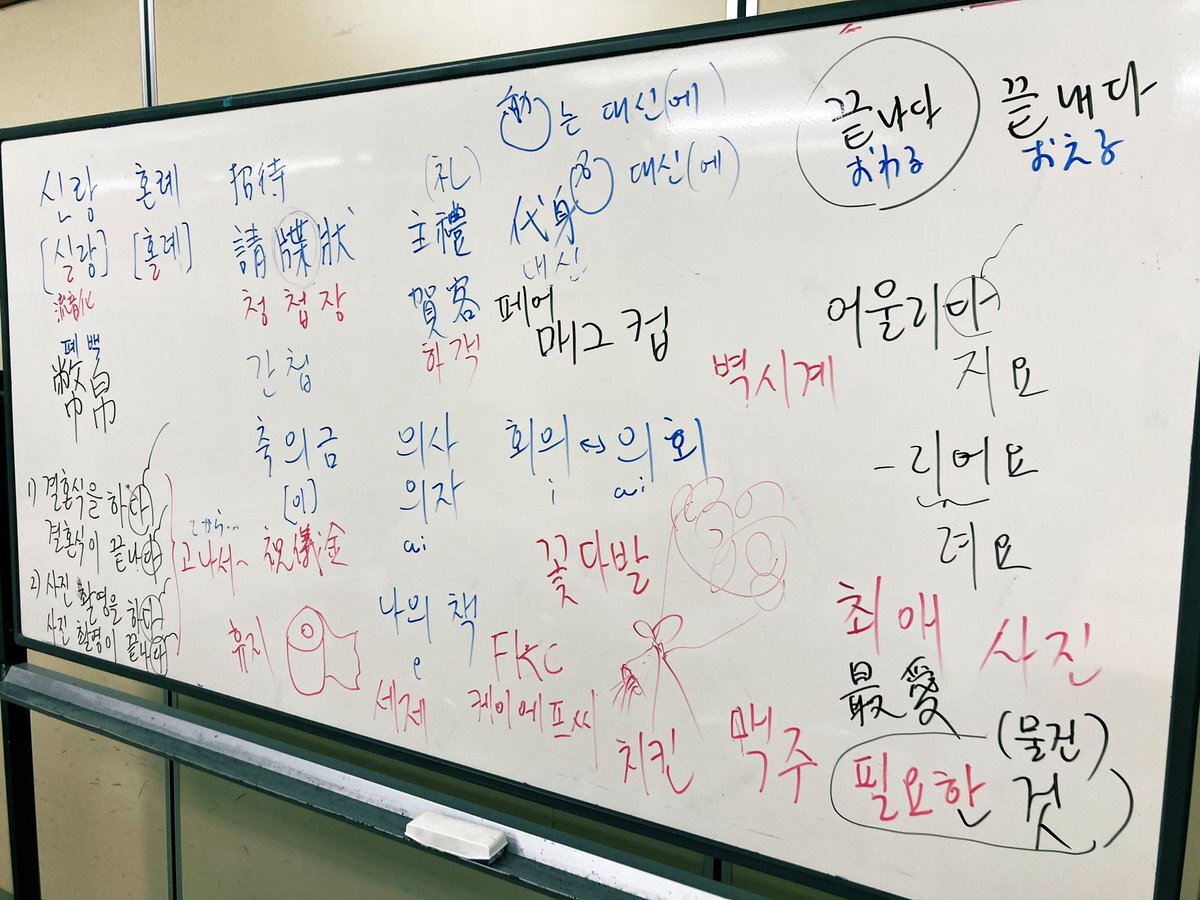 신랑 혼례 招待
[실랑] [홀례] 請牒狀
流音化 청첩장
폐백 간첩
幣帛
축의금
[이]
祝儀金
(礼)
主禮
賀客
하객
動는 대신(에)
名 대신(에)
代身
대신
페어
머그컵
벽시계
의사
의자
ai
회의 ↔ 의회
i ai
나의 책
e
1) 결혼식을 하다
결혼식이 끝나다
2) 사진 촬영을 하다
사진 촬영이 끝나다
고나서~
휴지
세제
꽃다발
FKC
케이에프씨
치킨
맥주
끝나다 끝내다
おわる おえる
어울리다
지요
-리어요
려요
최애 사진
最愛
(물건)
필요한 것